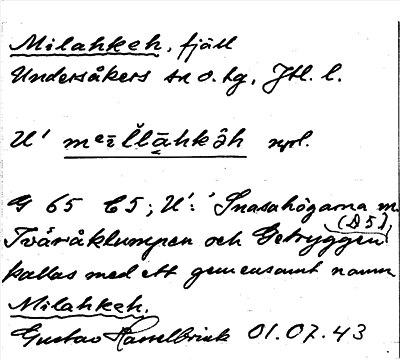 Milahkeh, fjäll
Undersåkers sn o. tg, Jtl. l.
U' npl.
G 65 C5; U': Snasahögarna m.
(D5)
Tväråklumpen och Getryggen
kallas med ett gemensamt namn
Milahkeh.
Gustav Hasselbrink 01.07.43